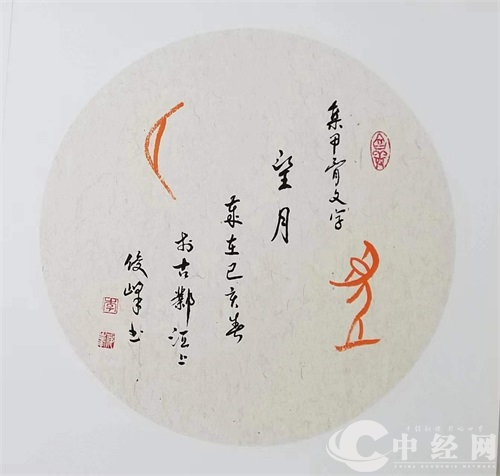 集甲骨文字
望月
歲在己亥春
於古鄴洹上
俊峰书
中经网